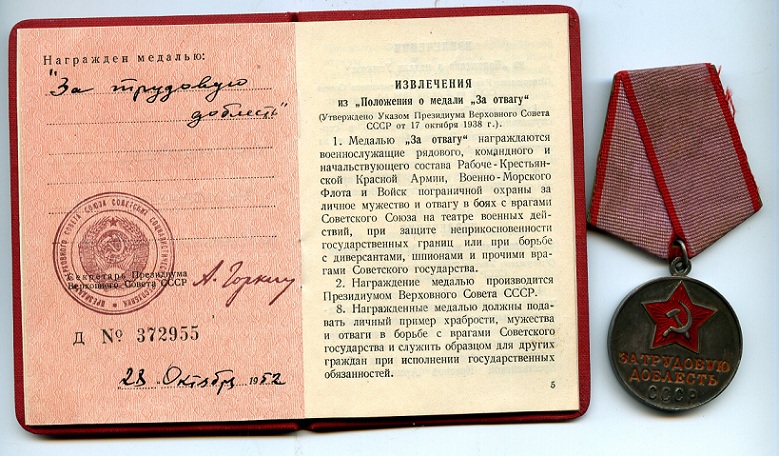 Награжден медалью:
"За трудовую
доблесть"
Секретарь Президиума
Верховного Совета СССР
А. Горкин
Д № 372955
28 Октября 1952
ИЗВЛЕЧЕНИЯ
из „Положения о медали „За отвагу“
(Утверждено Указом Президиума Верховного Совета
СССР от 17 октября 1938 г.).
1. Медалью „За отвагу“ награждаются
военнослужащие рядового, командного и
начальствующего состава Рабоче-Крестьян-
ской Красной Армии, Военно-Морского
Флота и Войск пограничной охраны за
личное мужество и отвагу в боях с врагами
Советского Союза на театре военных дей-
ствий, при защите неприкосновенности
государственных границ или при борьбе
с диверсантами, шпионами и прочими вра-
гами Советского государства.
2. Награждение медалью производится
Президиумом Верховного Совета СССР.
8. Награжденные медалью должны пода-
вать личный пример храбрости, мужества
и отваги в борьбе с врагами Советского
государства и служить образцом для других
граждан при исполнении государственных
обязанностей.
5
ЗА ТРУДОВУЮ
ДОБЛЕСТЬ
СССР